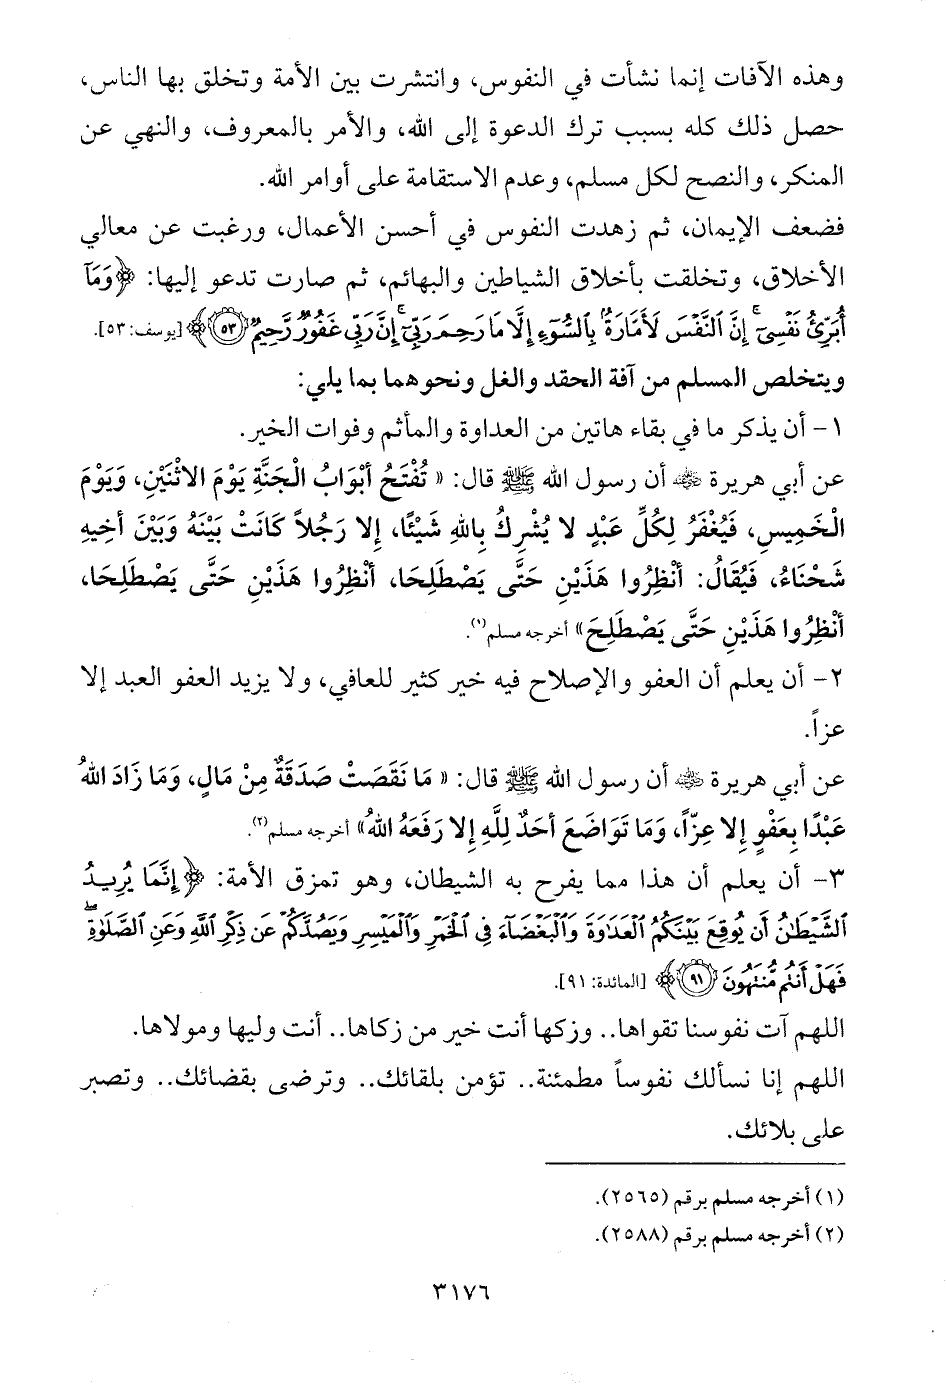 وهذه الآفات إنما نشأت في النفوس، وانتشرت بين الأمة وتخلق بها الناس،
حصل ذلك كله بسبب ترك الدعوة إلى الله، والأمر بالمعروف، والنهي عن
المنكر، والنصح لكل مسلم، وعدم الاستقامة على أوامر الله.
فضعف الإيمان، ثم زهدت النفوس في أحسن الأعمال، ورغبت عن معالي
الأخلاق، وتخلقت بأخلاق الشياطين والبهائم، ثم صارت تدعو إليها: ﴿وَمَآ
أُبَرِّئُ نَفْسِيٓ ۚ إِنَّ ٱلنَّفْسَ لَأَمَّارَةٌۢ بِٱلسُّوٓءِ إِلَّا مَا رَحِمَ رَبِّيٓ ۚ إِنَّ رَبِّي غَفُورٌ رَّحِيمٌ ٥٣﴾ [يوسف: ٥٣].
ويتخلص المسلم من آفة الحقد والغل ونحوهما بما يلي:
١- أن يذكر ما في بقاء هاتين من العداوة والمأثم وفوات الخير.
عن أبي هريرة رضي الله عنه أن رسول الله ﷺ قال: « تُفْتَحُ أَبْوَابُ الْجَنَّةِ يَوْمَ الاثْنَيْنِ، وَيَوْمَ
الْخَمِيسِ، فَيُغْفَرُ لِكُلِّ عَبْدٍ لا يُشْرِكُ بِاللهِ شَيْئًا، إِلا رَجُلاً كَانَتْ بَيْنَهُ وَبَيْنَ أَخِيهِ
شَحْنَاءُ، فَيُقَالُ: أَنْظِرُوا هَذَيْنِ حَتَّى يَصْطَلِحَا، أَنْظِرُوا هَذَيْنِ حَتَّى يَصْطَلِحَا،
أَنْظِرُوا هَذَيْنِ حَتَّى يَصْطَلِحَ» أخرجه مسلم(١).
٢- أن يعلم أن العفو والإصلاح فيه خير كثير للعافي، ولا يزيد العفو العبد إلا
عزاً.
عن أبي هريرة رضي الله عنه أن رسول الله ﷺ قال: « مَا نَقَصَتْ صَدَقَةٌ مِنْ مَالٍ، وَمَا زَادَ اللهُ
عَبْدًا بِعَفْوٍ إِلا عِزًّا، وَمَا تَوَاضَعَ أَحَدٌ لِلَّهِ إِلا رَفَعَهُ اللهُ» أخرجه مسلم(٢).
٣- أن يعلم أن هذا مما يفرح به الشيطان، وهو تمزق الأمة: ﴿إِنَّمَا يُرِيدُ
ٱلشَّيْطَٰنُ أَن يُوقِعَ بَيْنَكُمُ ٱلْعَدَٰوَةَ وَٱلْبَغْضَآءَ فِي ٱلْخَمْرِ وَٱلْمَيْسِرِ وَيَصُدَّكُمْ عَن ذِكْرِ ٱللَّهِ وَعَنِ ٱلصَّلَوٰةِ ۖ
فَهَلْ أَنتُم مُّنتَهُونَ ٩١﴾ [المائدة: ٩١].
اللهم آت نفوسنا تقواها.. وزكها أنت خير من زكاها.. أنت وليها ومولاها.
اللهم إنا نسألك نفوساً مطمئنة.. تؤمن بلقائك.. وترضى بقضائك.. وتصبر
على بلائك.
(١) أخرجه مسلم برقم (٢٥٦٥).
(٢) أخرجه مسلم برقم (٢٥٨٨).
٣١٧٦